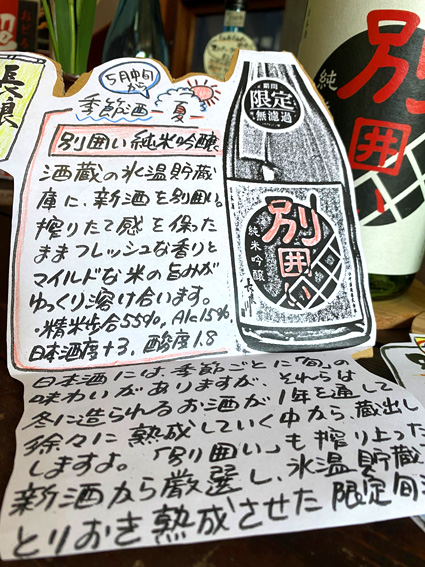 5月中旬
から
季節酒 夏
別囲い純米吟醸
酒蔵の氷温貯蔵
庫に、新酒を別囲い。
搾りたて感を保った
ままフレッシュな香りと
マイルドな米の旨みが
ゆっくり溶け合います。
・精米歩合55%, Alc15%
日本酒度+3, 酸度1.8
期間
限定
無濾過
別囲い
純米吟醸
日本酒には季節ごとに「旬」の
味わいがありますが、それらは
冬に造られるお酒が1年を通して
徐々に熟成していく中から、蔵出し
しますよ。「別囲い」も搾り上った
新酒から厳選し、氷温貯蔵
とりおき熟成させた限定旬
別囲い
純米